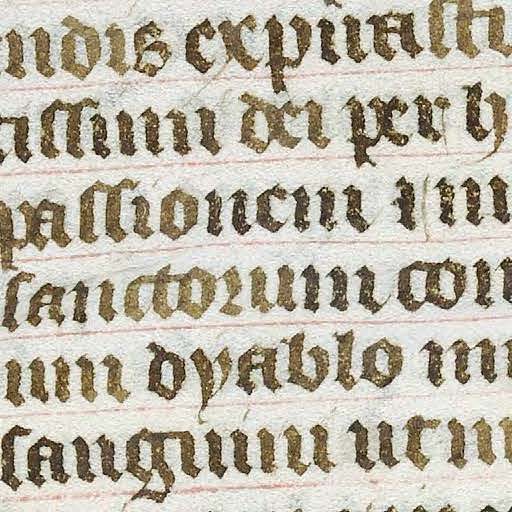 ndis expiiasti
issimi dei per h
passionem im
sanctorum con
um dyablo
sanguini